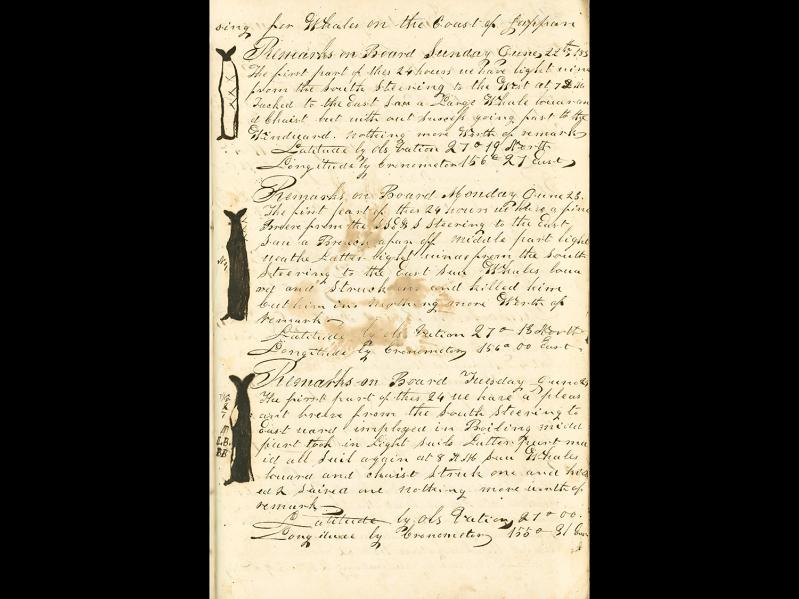 sing for Whales on the Coast of Jappan
Remarks on Board Sunday June 22th
The first part of thes 24 hours we have light win
from the South Steering to the West at 7 AM
Tacked to the East Saw a Large Whale louar an
d Chaist but with out Sucsess going fast to the
Windward. Nothing more Worth of remark
Latitude by obs Vation 27 o 19 North
Longitude by Cronometor 156 o 27 East
Remarks on Board Monday June 23.
The first part of thes 24 hours we have a fine
Breese from the S Steering to the East
Saw a Breach a far off middle part light
weathe Latter light winds from the South
Steering to the East Saw Whales loua
red and Struck one and killed him
Cut him in nothing more Worth of
remark
Latitude by obs Vation 27 o 13 North
Longitude by Cronometor 156 o 00 East
No 1
Remarks on Board Tuesday June
The first part of thes 24 we have a pleas
ant breese from the South Steering to
East ward imployed in Boiling midd
part took in Light Sails Latter part ma
id all Sail again at 8 AM Saw Whales
louard and chaist Struck one and
ed & Saived one nothing more worth of
remark
L.B.
BB
Latitude by obs Vation 27 o 00.
Longitude by Cronometor 155 o 31 East